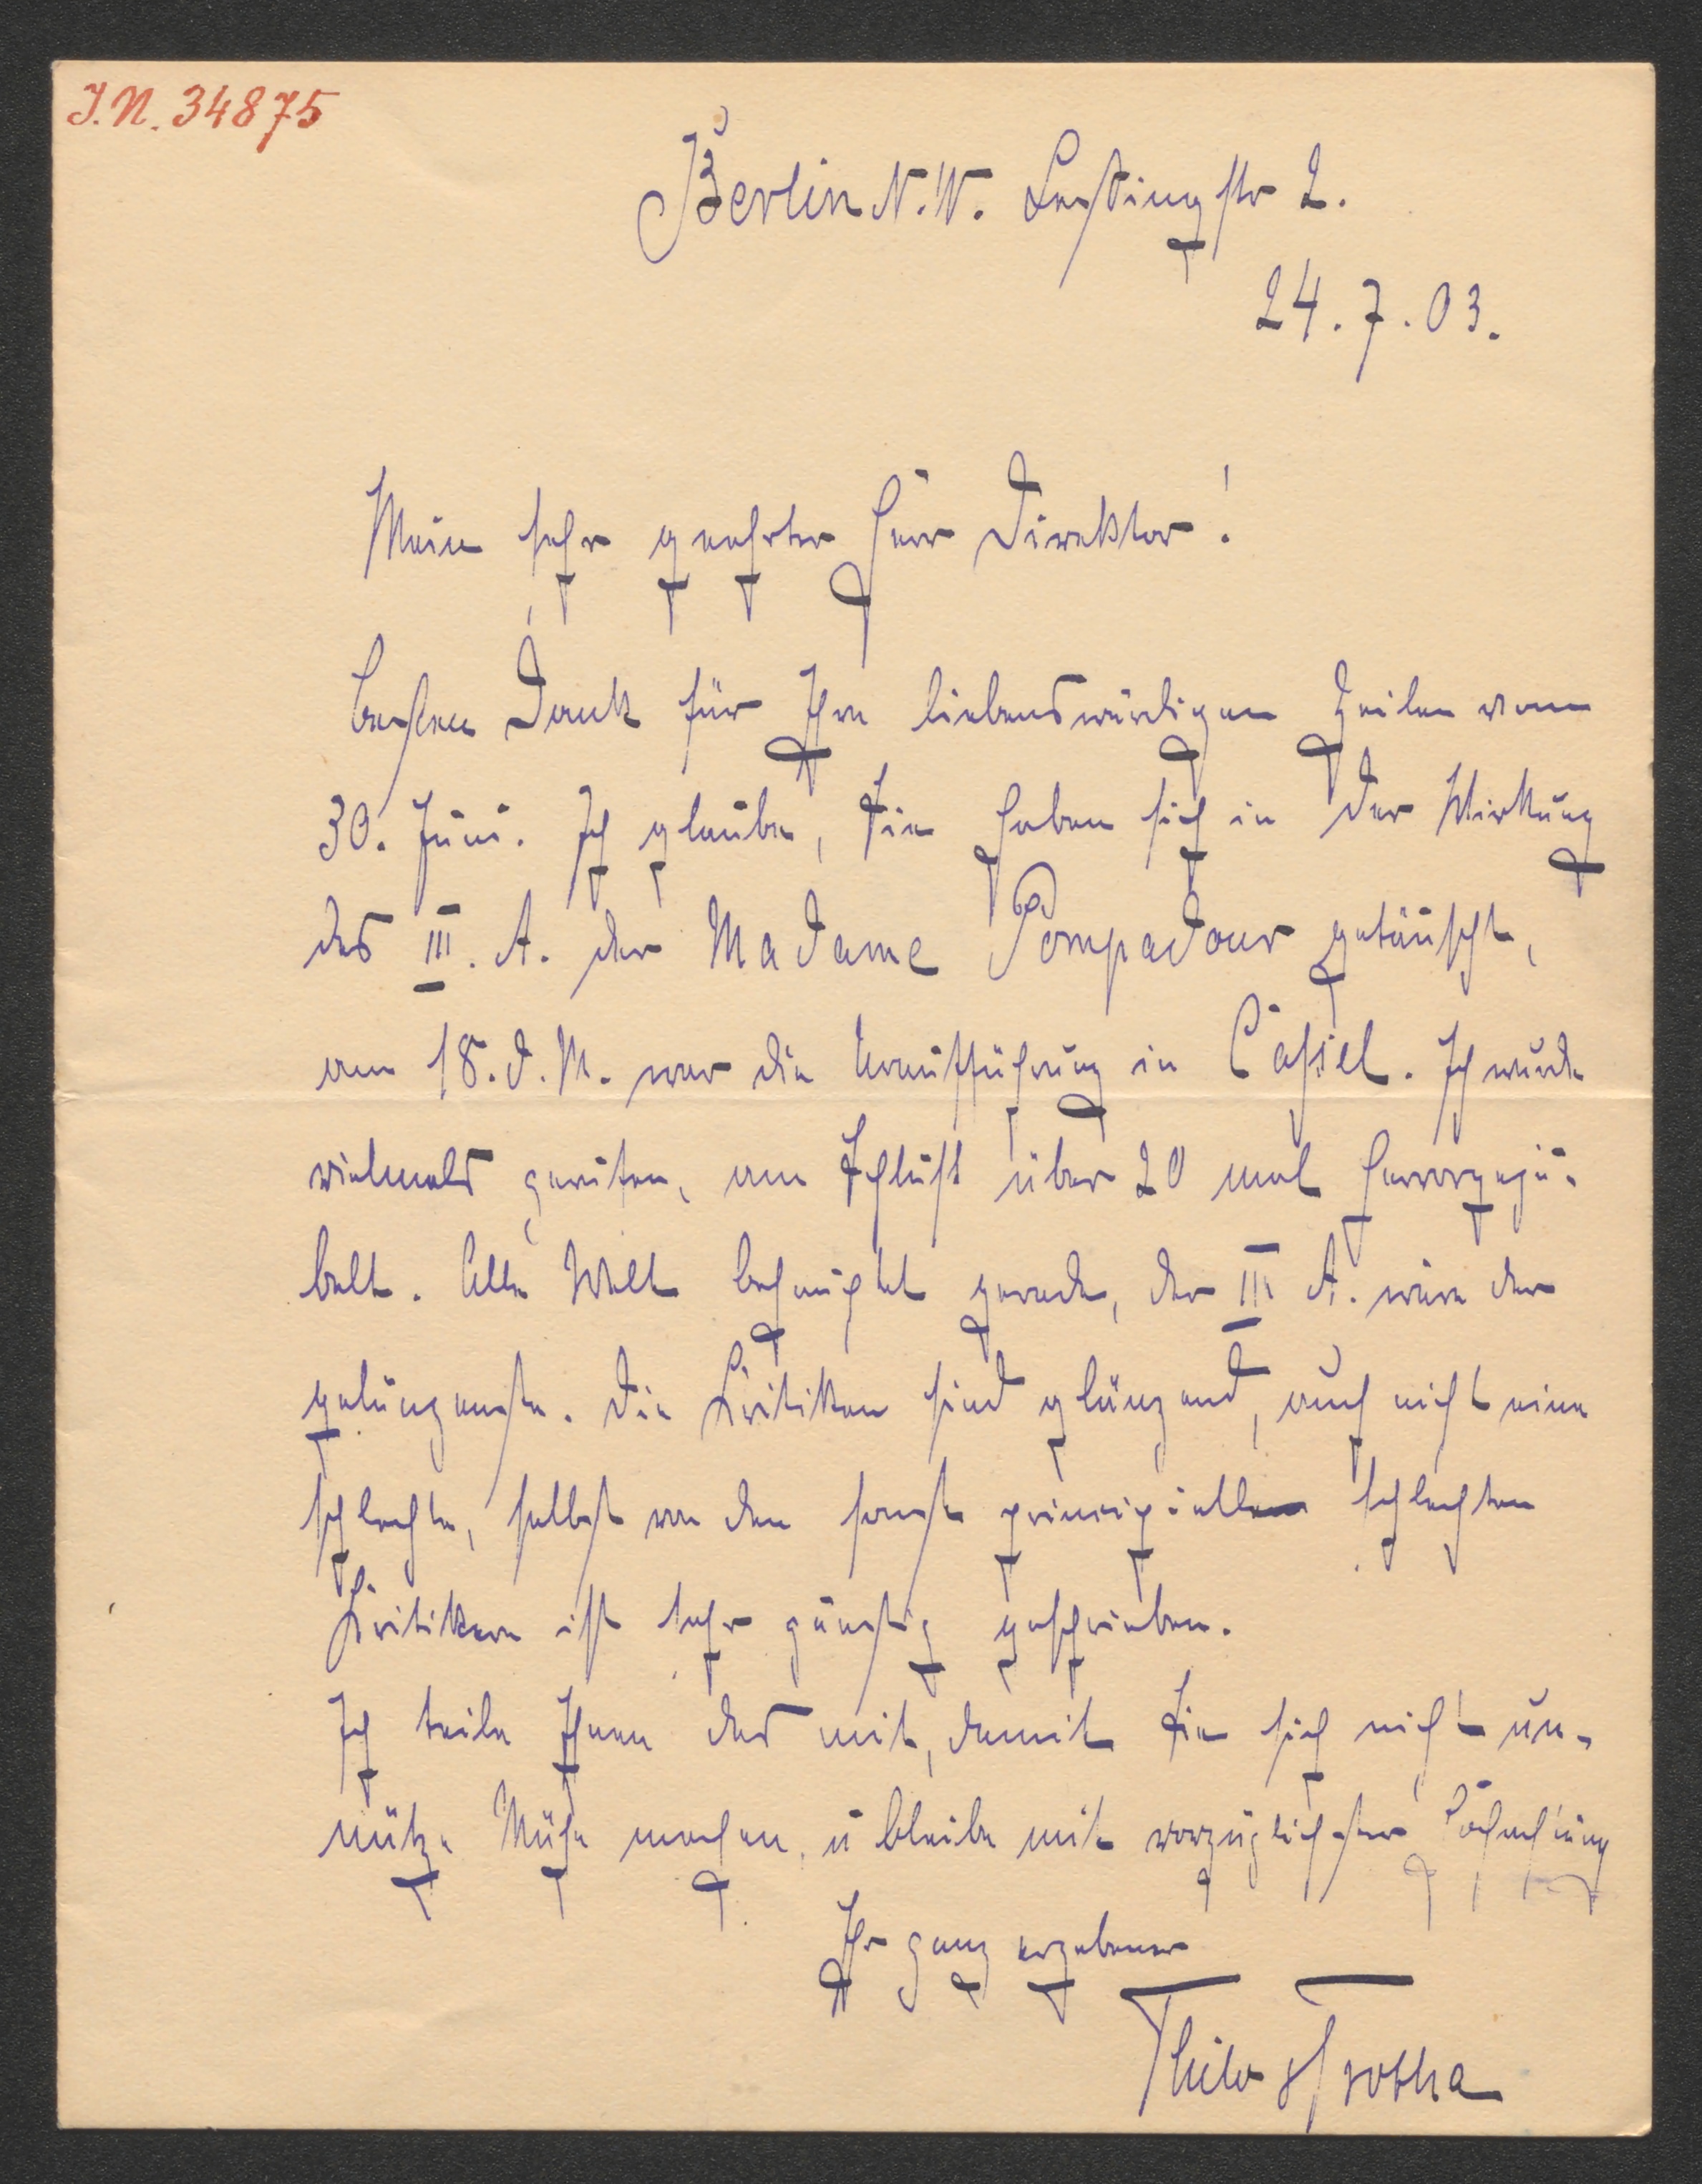 J.N. 34875
Berlin N.W. Lessingstr 2.
24.7.03.
Mein sehr geehrter Herr Direktor!
besten Dank für Ihre liebenswürdigen Zeilen vom
30. Juni. Ich glaube, Sie haben sich in der Wirkung
des III. A. der Madame Pompadour getäuscht,
am 18. d. M. war die Uraufführung in Cassel. Ich wurde
vielmals gerufen, am Schluß über 20 mal hervorgeju-
belt. Alle Welt behauptet gerade, der III. A. wäre der
gelungenste. Die Kritiken sind glänzend, auch nicht eine
schlechte, selbst von den sonst principiellen schlechten
Kritikern ist sehr günstig geschrieben.
Ich teile Ihnen das mit, damit Sie sich nicht un-
nütze Mühe machen, u bleibe mit vorzüglichster Hochachtung
Ihr ganz ergebener
Thilo v Trotha